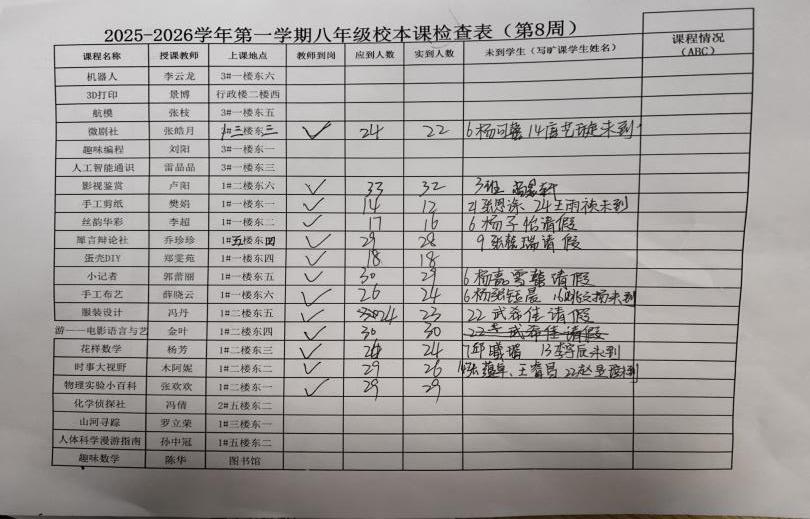 2025-2026学年第一学期八年级校本课检查表（第8周）
课程名称 授课教师 上课地点 教师到岗 应到人数 实到人数 未到学生（写旷课学生姓名） 课程情况（ABC）
机器人 李云龙 3#一楼东六
3D打印 景博 行政楼二楼西
航模 张枝 3#一楼东五
微剧社 张皓月 1#三楼东三 ✓ 24 22 6杨可馨 14 未到
趣味编程 刘阳 3#一楼东一
人工智能通识 雷晶晶 3#一楼东三
影视鉴赏 卢阳 1#二楼东六 ✓ 33 32 3班
手工剪纸 樊娟 1#一楼东一 ✓ 14 12 张恩涂 24王雨 未到
丝韵华彩 李超 1#一楼东二 ✓ 17 16 6杨子怡请假
犀言辩论社 乔珍珍 1#五楼东四 ✓ 29 28 9张 瑞请假
蛋壳DIY 郑雯苑 1#一楼东四 ✓ 18 18
小记者 郭蕾丽 1#一楼东五 ✓ 30 29 6杨 请假
手工布艺 薛晓云 1#一楼东六 ✓ 26 24 6杨 晨 16姚 未到
服装设计 冯丹 1#二楼东五 ✓ 24 23 22武 佳请假
游——电影语言与艺 金叶 1#二楼东四 ✓ 30 30
花样数学 杨芳 1#二楼东三 ✓ 24 7邱 13李宇辰未到
时事大视野 木阿妮 1#二楼东二 ✓ 29 26 张 王睿昌 22赵
物理实验小百科 张欢欢 1#二楼东一 ✓ 29 29
化学侦探社 冯倩 2#五楼东二
山河寻踪 罗立荣 1#三楼东一
人体科学漫游指南 孙中冠 1#五楼东二
趣味数学 陈华 图书馆